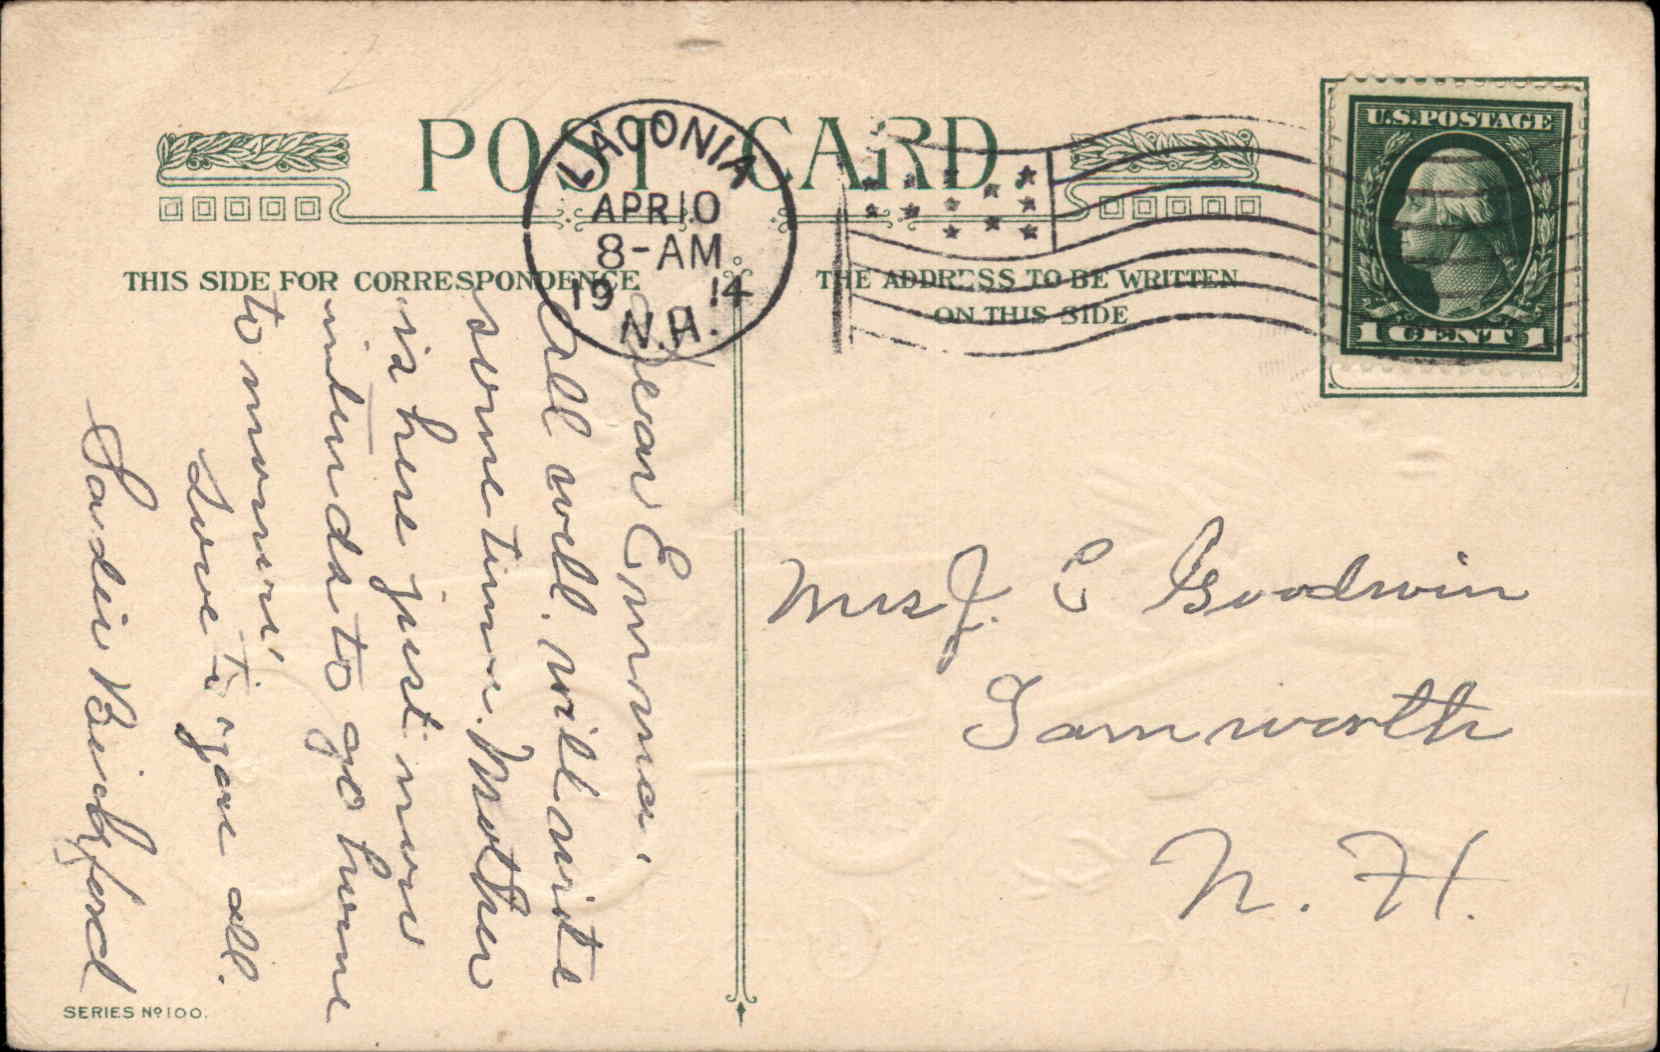 POST CARD
LACONIA
APR 10
8-AM
19 14
N.H.
U.S. POSTAGE
1 CENT 1
THIS SIDE FOR CORRESPONDENCE
THE ADDRESS TO BE WRITTEN
ON THIS SIDE
Dear Emma,
all well. will write
some time. Mother
is here just now
intends to go home
tomorrow
Love to you all.
Sadie Bickford
Mrs J. E Goodwin
Tamworth
N. H.
SERIES Nº 100.